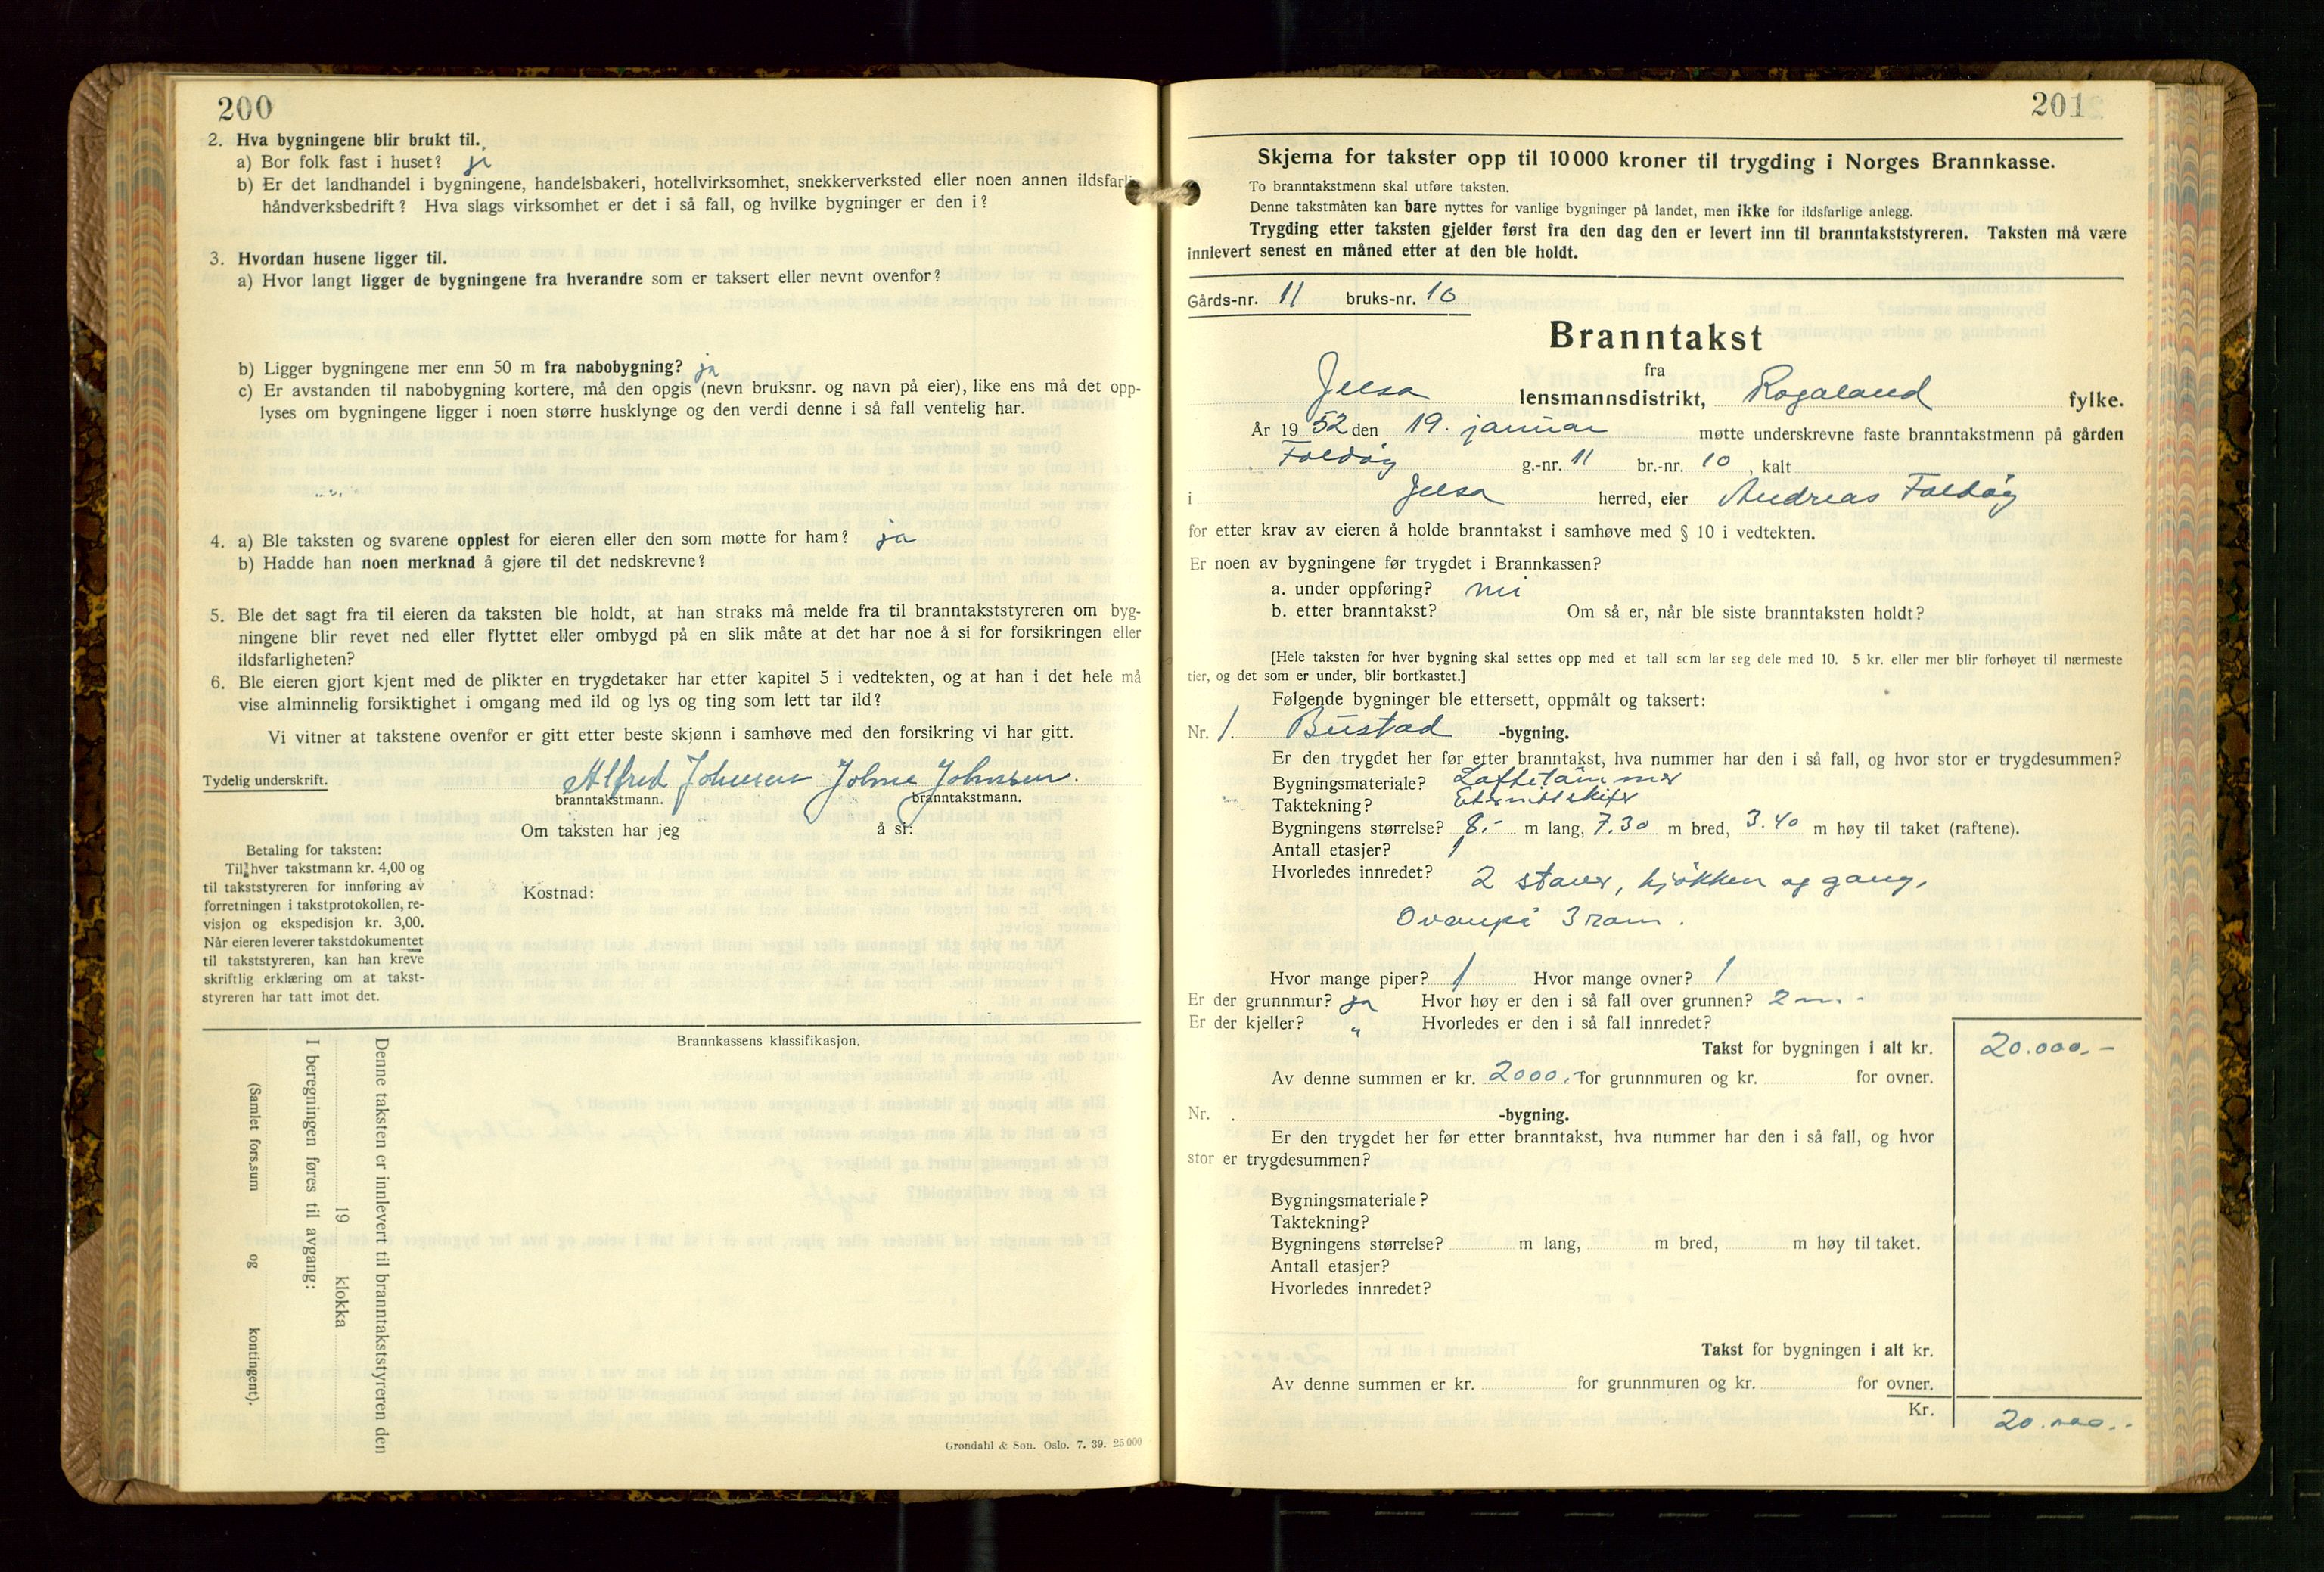 200
2. Hva bygningene blir brukt til.
a) Bor folk fast i huset? ja
b) Er det landhandel i bygningene, handelsbakeri, hotellvirksomhet, snekkerverksted eller noen annen ildsfarlig
håndverksbedrift? Hva slags virksomhet er det i så fall, og hvilke bygninger er den i?
3. Hvordan husene ligger til.
a) Hvor langt ligger de bygningene fra hverandre som er taksert eller nevnt ovenfor?
b) Ligger bygningene mer enn 50 m fra nabobygning? ja
c) Er avstanden til nabobygning kortere, må den opgis (nevn bruksnr. og navn på eier), like ens må det opp-
lyses om bygningene ligger i noen større husklynge og den verdi denne i så fall ventelig har.
4. a) Ble taksten og svarene opplest for eieren eller den som møtte for ham? ja
b) Hadde han noen merknad å gjøre til det nedskrevne?
5. Ble det sagt fra til eieren da taksten ble holdt, at han straks må melde fra til branntakststyreren om byg-
ningene blir revet ned eller flyttet eller ombygd på en slik måte at det har noe å si for forsikringen eller
ildsfarligheten?
6. Ble eieren gjort kjent med de plikter en trygdetaker har etter kapitel 5 i vedtekten, og at han i det hele må
vise alminnelig forsiktighet i omgang med ild og lys og ting som lett tar ild?
Vi vitner at takstene ovenfor er gitt etter beste skjønn i samhøve med den forsikring vi har gitt.
Tydelig underskrift. Alfred Johnsen Johne Johnsen.
branntakstmann. branntakstmann.
Om taksten har jeg å si:
Betaling for taksten:
Til hver takstmann kr. 4,00 og
til takststyreren for innføring av
forretningen i takstprotokollen, re-
visjon og ekspedisjon kr. 3,00.
Når eieren leverer takstdokumentet
til takststyreren, kan han kreve
skriftlig erklæring om at takst-
styreren har tatt imot det.
Kostnad:
Brannkassens klassifikasjon.
Denne taksten er innlevert til branntakststyreren den
19 klokka
I beregningen føres til avgang:
(Samlet fors.sum og kontingent).
Grøndahl & Søn. Oslo. 7. 39. 25 000
201
Skjema for takster opp til 10 000 kroner til trygding i Norges Brannkasse.
To branntakstmenn skal utføre taksten.
Denne takstmåten kan bare nyttes for vanlige bygninger på landet, men ikke for ildsfarlige anlegg.
Trygding etter taksten gjelder først fra den dag den er levert inn til branntakststyreren. Taksten må være
innlevert senest en måned etter at den ble holdt.
Gårds-nr. 11 bruks-nr. 10
Branntakst
fra
Jelsa lensmannsdistrikt, Rogaland fylke.
År 1952 den 19. januar møtte underskrevne faste branntakstmenn på gården
Foldøy g.-nr. 11 br.-nr. 10, kalt
i Jelsa herred, eier Andreas Foldøy
for etter krav av eieren å holde branntakst i samhøve med § 10 i vedtekten.
Er noen av bygningene før trygdet i Brannkassen?
a. under oppføring? nei
b. etter branntakst? Om så er, når ble siste branntaksten holdt?
[Hele taksten for hver bygning skal settes opp med et tall som lar seg dele med 10. 5 kr. eller mer blir forhøyet til nærmeste
tier, og det som er under, blir bortkastet.]
Følgende bygninger ble ettersett, oppmålt og taksert:
Nr. 1. Bustad -bygning.
Er den trygdet her før etter branntakst, hva nummer har den i så fall, og hvor stor er trygdesummen?
Bygningsmateriale? Laftetømmer
Taktekning? Eternittskifer
Bygningens størrelse? 8.- m lang, 7.30 m bred, 3.40 m høy til taket (raftene).
Antall etasjer? 1
Hvorledes innredet? 2 stover, kjøkken og gang,
Ovanpå 3 rom.
Hvor mange piper? 1 Hvor mange ovner? 1
Er der grunnmur? ja Hvor høy er den i så fall over grunnen? 2 m. -
Er der kjeller? " Hvorledes er den i så fall innredet?
Takst for bygningen i alt kr. 20.000.-
Av denne summen er kr. 2000.- for grunnmuren og kr. for ovner.
Nr. -bygning.
Er den trygdet her før etter branntakst, hva nummer har den i så fall, og hvor
stor er trygdesummen?
Bygningsmateriale?
Taktekning?
Bygningens størrelse? m lang, m bred, m høy til taket.
Antall etasjer?
Hvorledes innredet?
Takst for bygningen i alt kr.
Av denne summen er kr. for grunnmuren og kr. for ovner.
Kr. 20.000.-